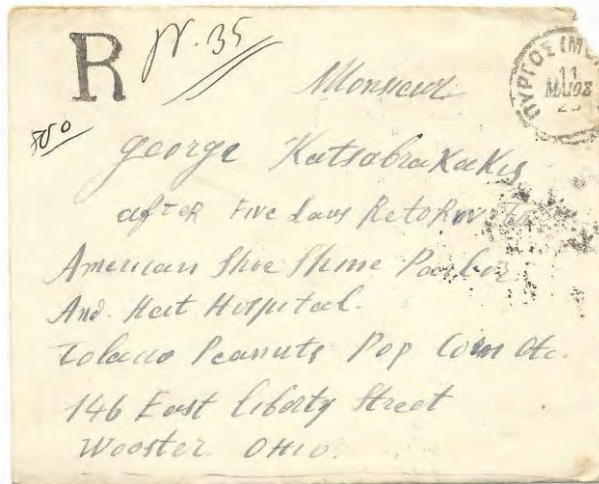 R N. 35
ΠΥΡΓΟΣ
11
ΜΑΙΟΣ
Monsieur
George Katsabrakakis
after Five Days Retorn To
American Shoe Shine Parlor
And. Hat Hospital.
Tobacco Peanuts Pop Corn etc.
146 East Liberty Street
Wooster OHio.